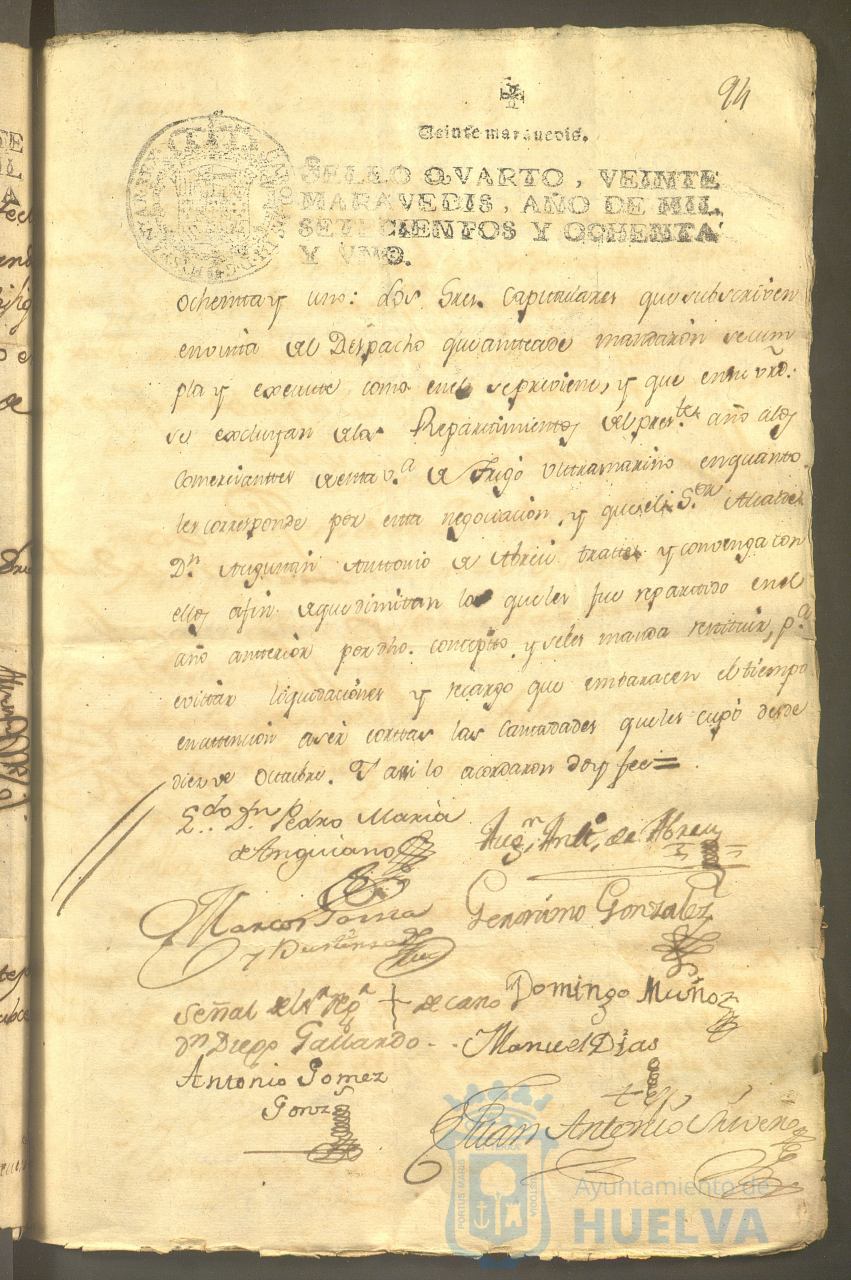 94
Veinte maravedis.
SELLO QVARTO, VEINTE
MARAVEDIS, AÑO DE MIL
SETECIENTOS Y OCHENTA
Y VNO.
ochenta y uno: Los Sres. Capitulares que subscriven
en vista del Despacho que antecede mandaron se cum
pla y execute como en el se previene, y que en su vrd:
se excluyan de los Repartimientos del pres.te año a los
Comerciantes de esta v.a de Trigo Ultramarino en quanto
les corresponde por esta negociacion, y que el S.or Alcalde
D.n Augustin Antonio de Abreu trate y convenga con
ellos a fin de que dimitan lo que les fue repartido en el
año anterior por dho. concepto y se les manda restituir, p.a
evitar liquidaciones y recargo que embaracen el tiempo
en attencion a ser cortas las Cantidades que les cupo desde
diez de Octubre. Y asi lo acordaron doy fee=
L.do D.n Pedro Maria
de Anguiano
Aug.n Ant.o de Abreu
Marcos
y
Geronimo Gonzalez
Señal de + de cano
Domingo Muñoz
D.n Diego Gallardo
Manuel Dias
Antonio Gomez
Gonz
Juan Antonio
PORTUS MARIS
ET TERRAE
CUSTODIA
Ayuntamiento de
HUELVA